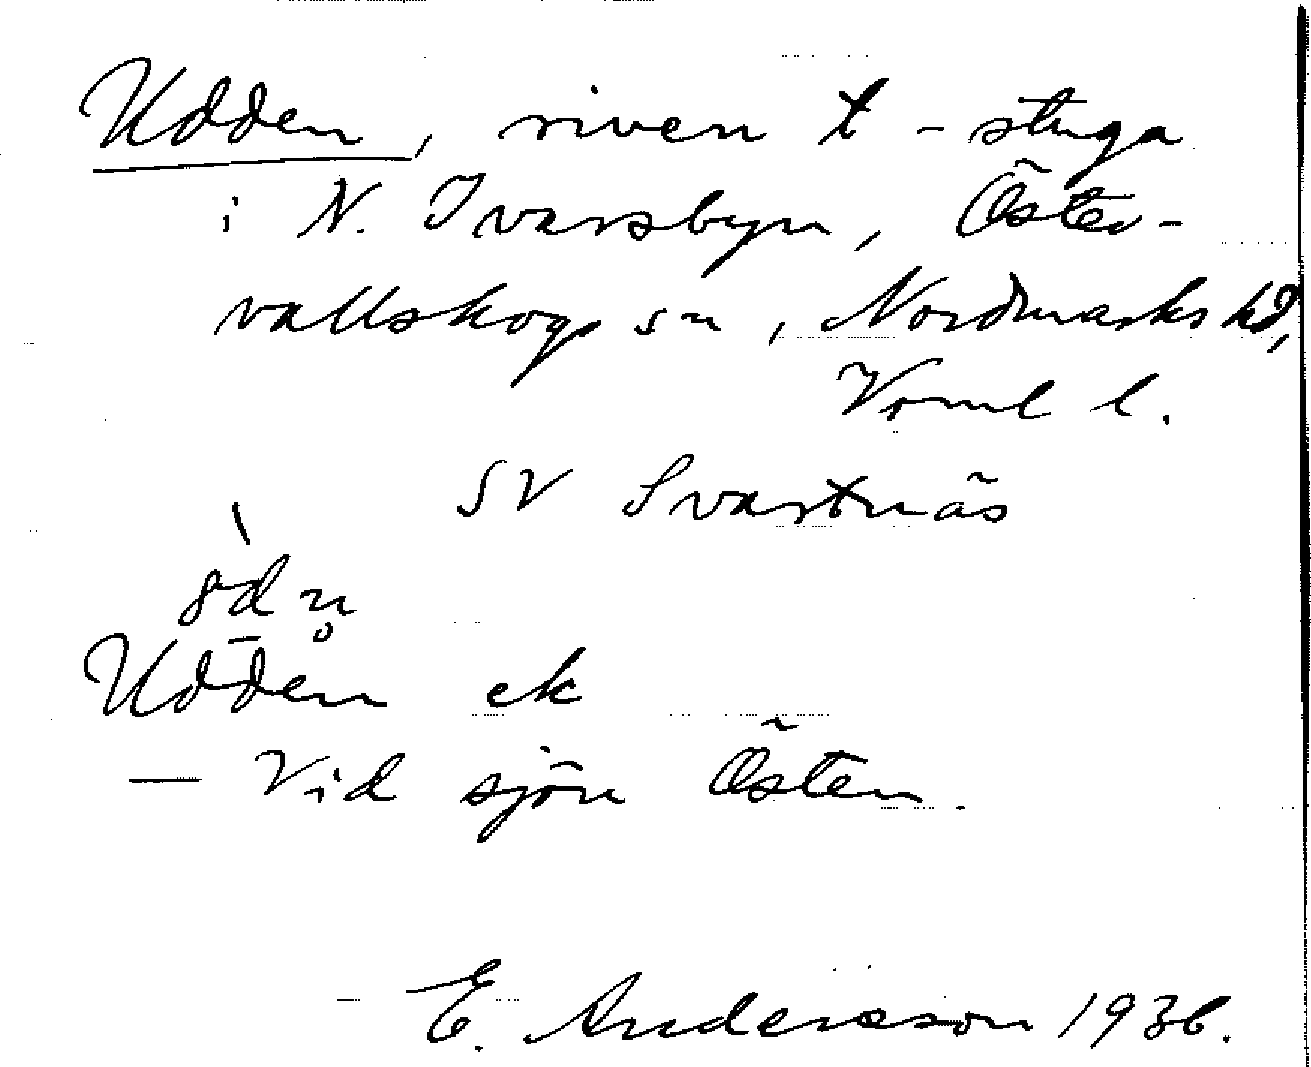 Udden, riven t-stuga
i N. Ivarsbyn, Öster-
vallskogs sn, Nordmarks hd,
Verml l.
SV Svartnäs
Udden ek
— Vid sjön Östen.
E. Andersson 1936.